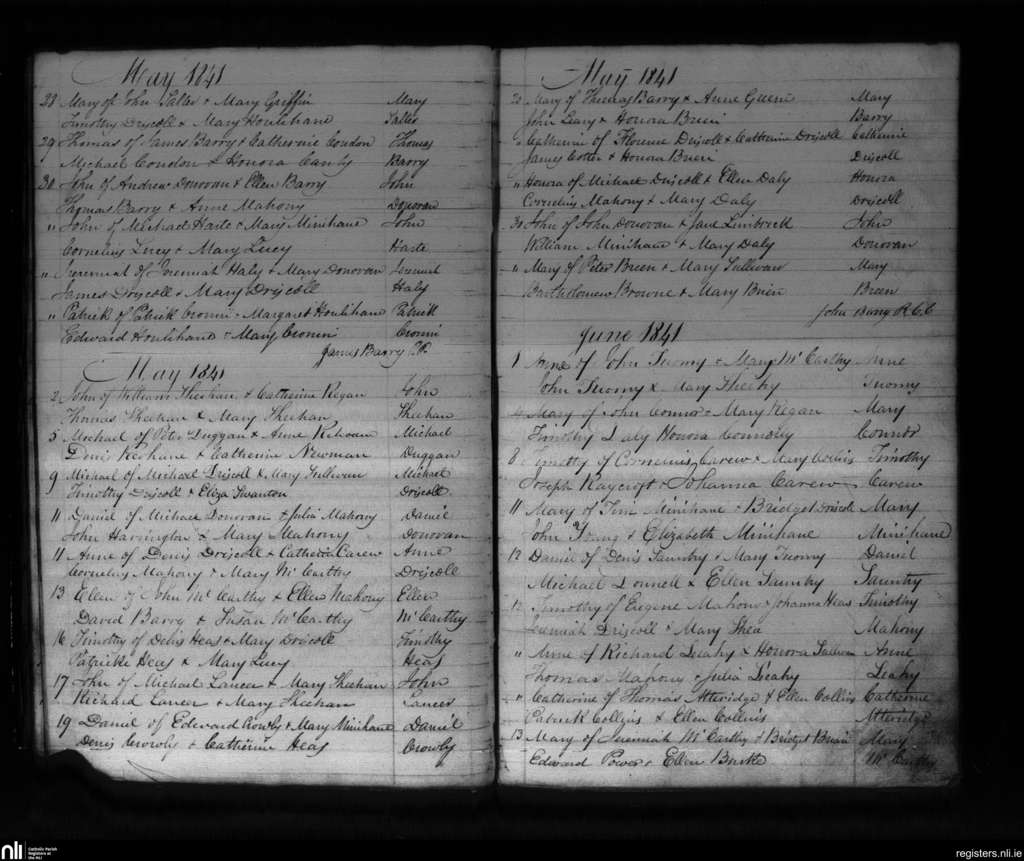 May 1841
28 Mary of John Salter & Mary Griffin Mary
Timothy Driscoll & Mary Houlihane Salter
29 Thomas of James Barry & Catherine Condon Thomas
Michael Condon & Honora Canty Barry
30 John of Andrew Donovan & Ellen Barry John
Thomas Barry & Anne Mahony Donovan
" John of Michael Harte & Mary Minihane John
Cornelius Lucy & Mary Lucey Harte
" Jeremiah of Jeremiah Haly & Mary Donovan
James Driscoll & Mary Driscoll Haly
" Patrick of Patrick Cronin & Margaret Houlihane Patrick
Edward Houlihane & Mary Cronin Cronin
James Barry P.P.
May 1841
2 John of William Sheehan & Catherine Regan John
Thomas Sheehan & Mary Sheehan Sheehan
5 Michael of Peter Duggan & Anne Michael
Denis Keohane & Catherine Newman Duggan
9 Michael of Michael Driscoll & Mary Sullivan Michael
Timothy Driscoll & Eliza Swanton Driscoll
11 Daniel of Michael Donovan & Julia Mahony Daniel
John Harrington & Mary Mahony Donovan
11 Anne of Denis Driscoll & Catherine Carew Anne
Cornelius Mahony & Mary McCarthy Driscoll
13 Ellen of John McCarthy & Ellen Mahony Ellen
David Barry & Susan McCarthy McCarthy
16 Timothy of Denis Heas & Mary Driscoll Timothy
Patrick Heas & Mary Lucy Heas
17 John of Michael Lancer & Mary Sheehan John
Richard Lancer & Mary Sheehan Lancer
19 Daniel of Edward Crowly & Mary Minihane Daniel
Denis Crowly & Catherine Heas Crowly
May 1841
Mary of Thomas Barry & Anne Mary
John Leary & Honora Breen Barry
" Catherine of Florence Driscoll & Catherine Driscoll Catherine
James Cotter & Honora Breen Driscoll
" Honora of Michael Driscoll & Ellen Daly Honora
Cornelius Mahony & Mary Daly Driscoll
30 John of John Donovan & Jane Limbrick John
William Minihane & Mary Daly Donovan
" Mary of Peter Breen & Mary Sullivan Mary
Bartholomew Browne & Mary Brien Breen
John Barry R.C.C
June 1841
1 Anne of John Twomy & Mary McCarthy Anne
John Twomy & Mary Sheehy Twomy
4 Mary of John Connor & Mary Regan Mary
Timothy Daly Honora Connolly Connor
8 Timothy of Cornelius Carew & Mary Collins Timothy
Joseph Raycroft & Johanna Carew Carew
11 Mary of Tim Minihane & Bridget Driscoll Mary
John Young & Elizabeth Minihane Minihane
12 Daniel of Denis Saunby & Mary Twomy Daniel
Michael Donnell & Ellen Saunby Saunby
12 Timothy of Eugene Mahony & Johanna Heas Timothy
Jeremiah Driscoll & Mary Shea Mahony
" Anne of Richard Leahy & Honora Sullivan Anne
Thomas Mahony & Julia Leahy Leahy
" Catherine of Thomas Atteridge & Ellen Collins Catherine
Patrick Collins & Ellen Collins Atteridge
13 Mary of Jeremiah McCarthy & Bridget Brien Mary
Edward Power & Ellen Burke McCarthy
nli Catholic Parish Registers at the NLI
registers.nli.ie